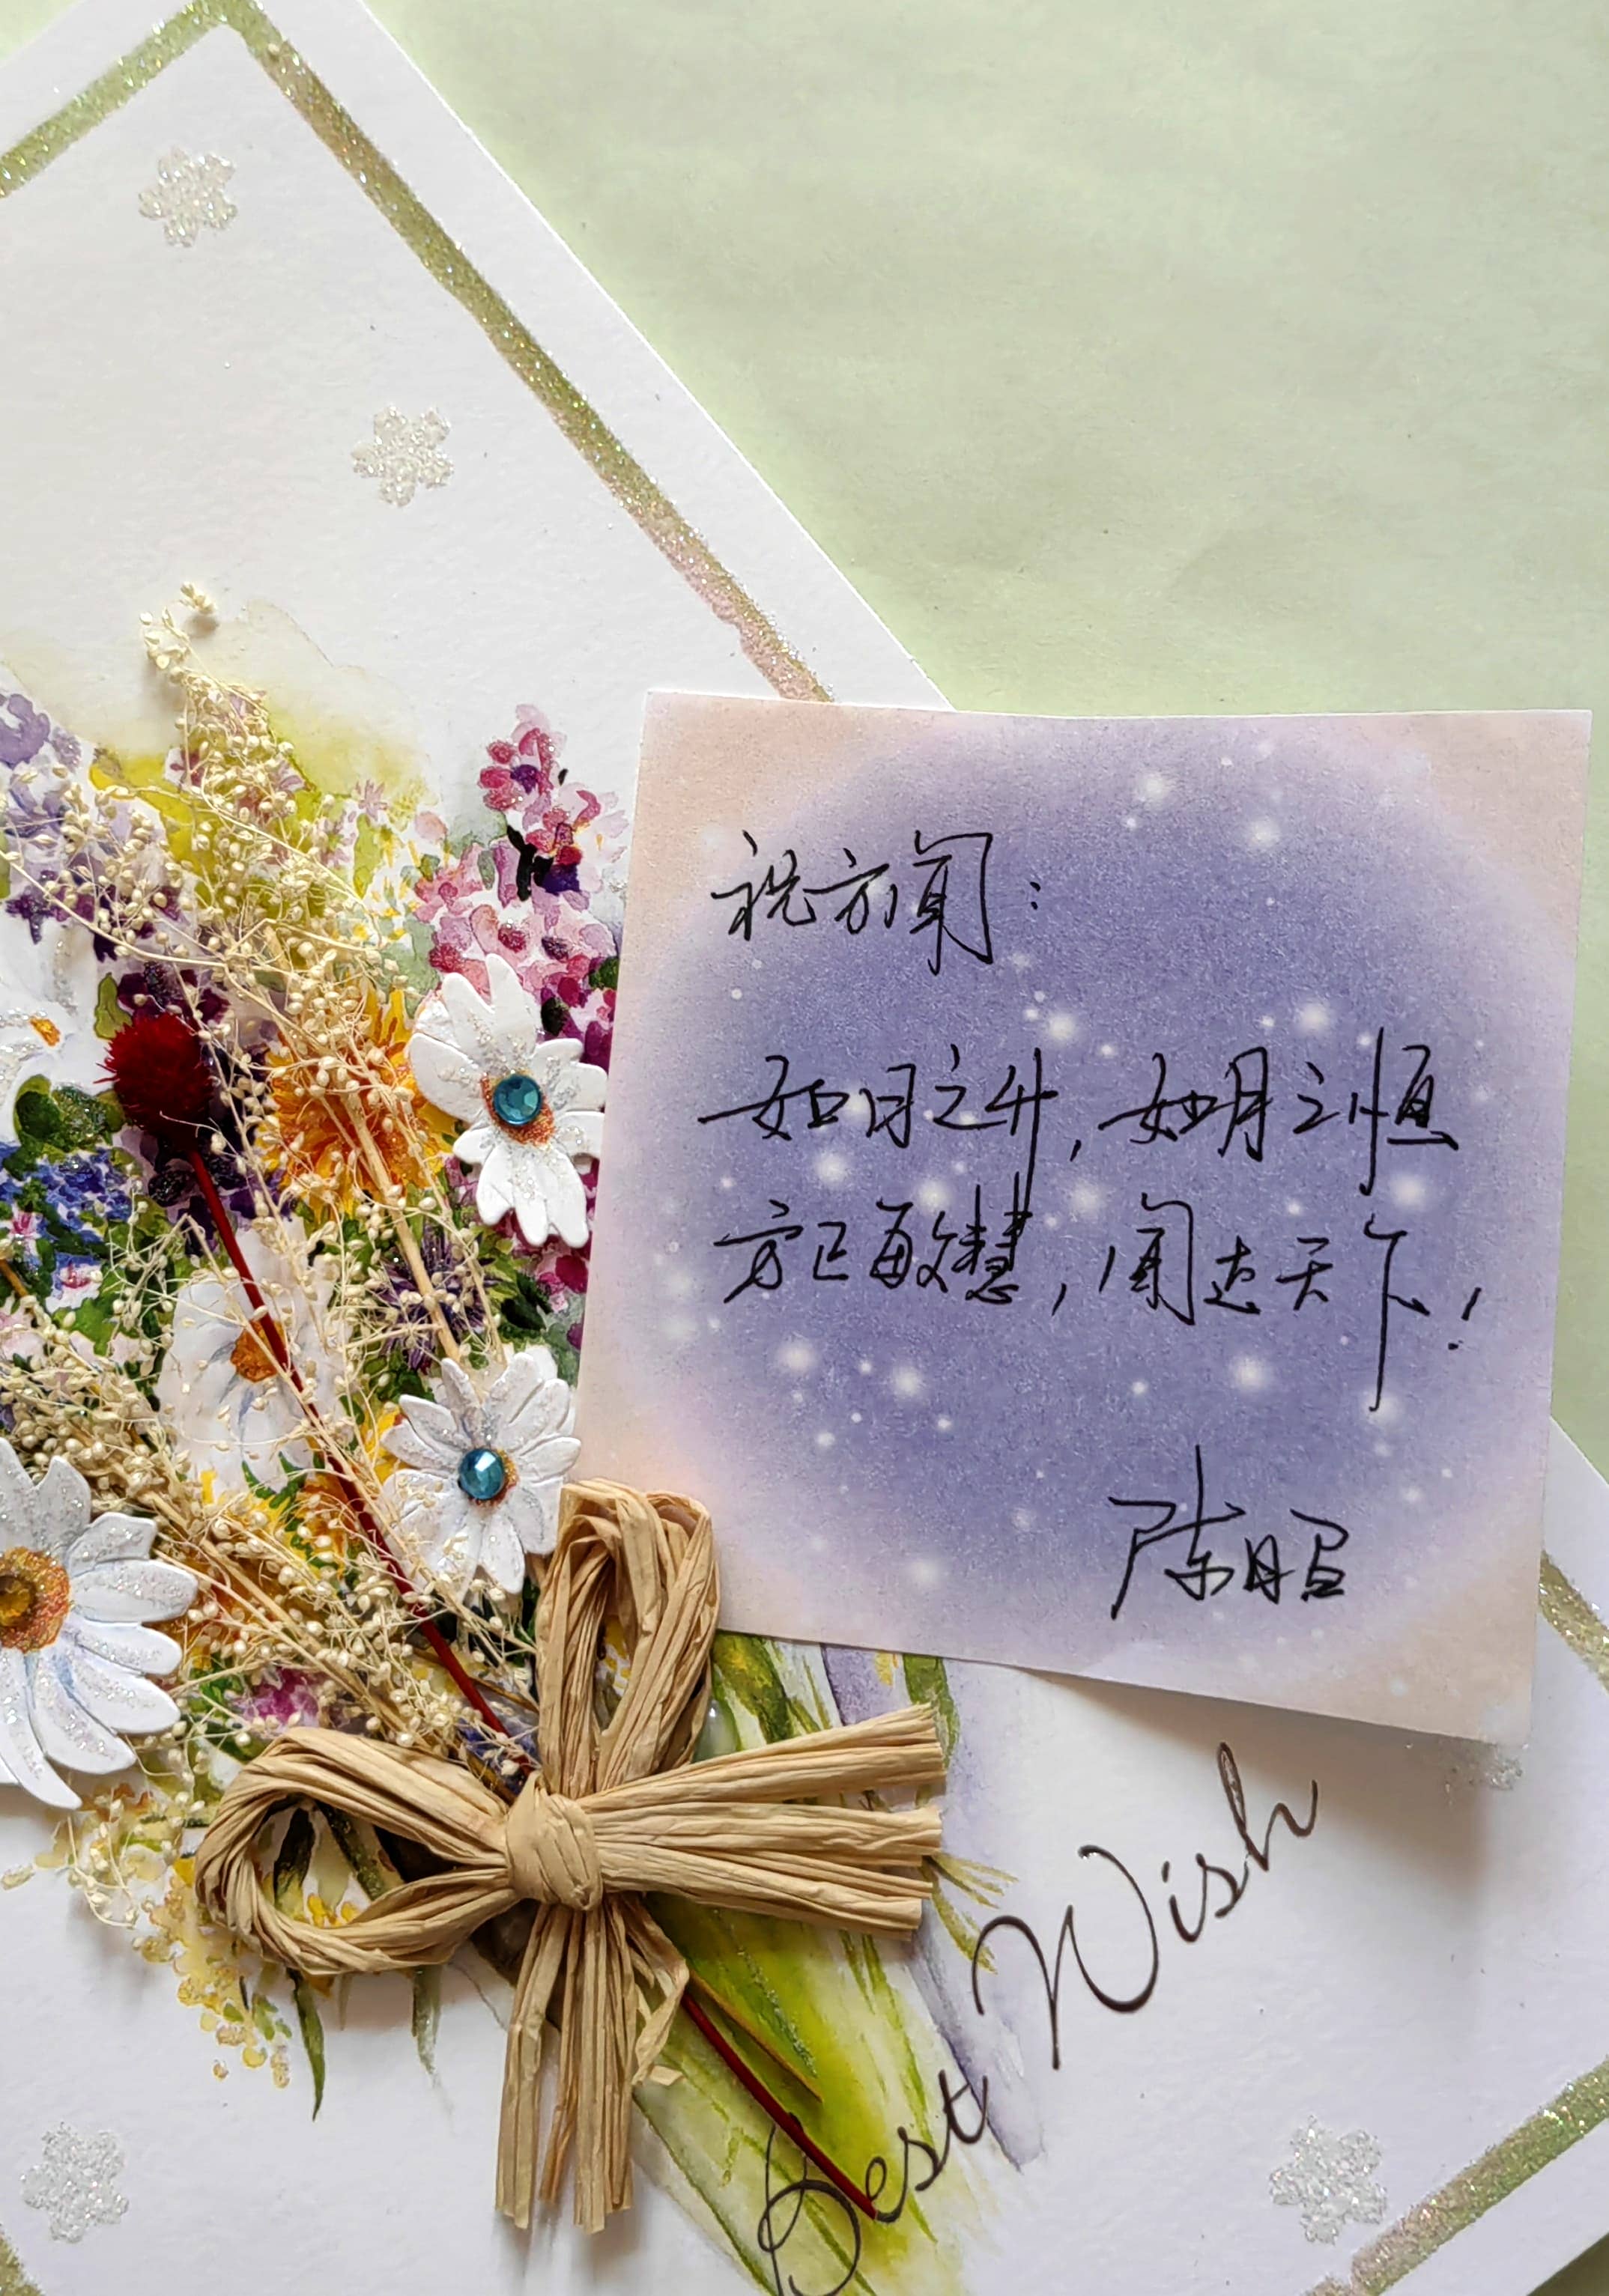 祝方闻：
如日之升，如月之恒
方正敏慧，闻达天下！
陈昭
Best Wish